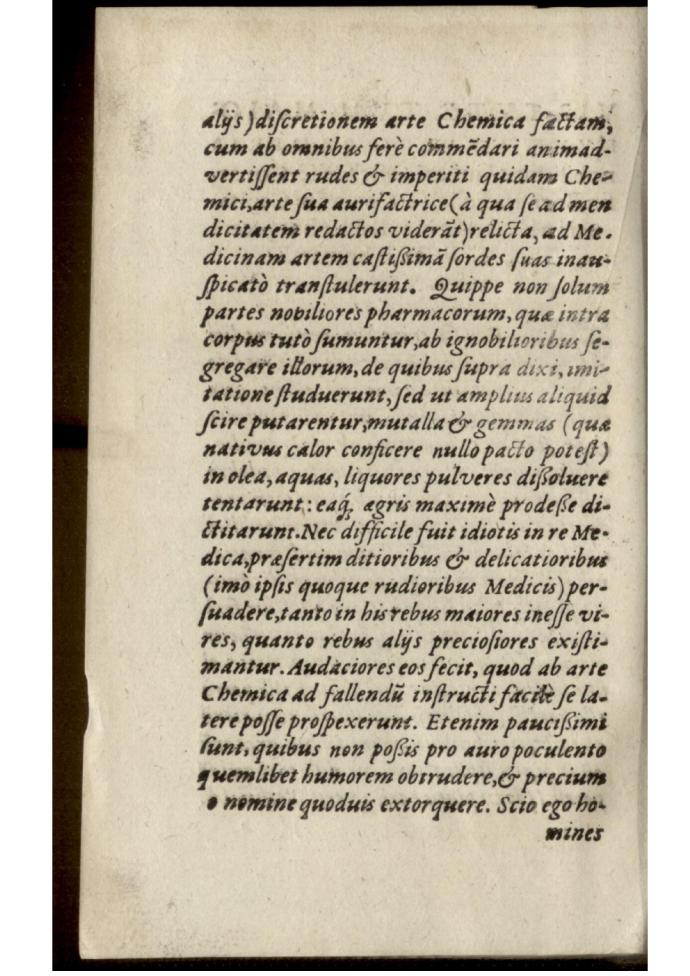 alijs) discretionem arte Chemica factam,
cum ab omnibus ferè commẽdari animad-
vertissent rudes & imperiti quidam Che-
mici, arte sua aurifactrice (à qua se ad men
dicitatem redactos viderãt) relicta, ad Me-
dicinam artem castißimã sordes suas inau-
spicatò transtulerunt. Quippe non solum
partes nobiliores pharmacorum, quæ intra
corpus tutò sumuntur, ab ignobilioribus se-
gregare illorum, de quibus supra dixi, imi-
tatione studuerunt, sed ut amplius aliquid
scire putarentur, mutalla & gemmas (quæ
nativus calor conficere nullo pacto potest)
in olea, aquas, liquores pulveres dißoluere
tentarunt: eaq́; ægris maximè prodeße di-
ctitarunt. Nec difficile fuit idiotis in re Me-
dica, præsertim ditioribus & delicatioribus
(imò ipsis quoque rudioribus Medicis) per-
suadere, tanto in his rebus maiores inesse vi-
res, quanto rebus alijs preciosiores existi-
mantur. Audaciores eos fecit, quod ab arte
Chemica ad fallendũ instructi facilè se la-
tere posse prospexerunt. Etenim paucißimi
sunt, quibus non poßis pro auro poculento
quemlibet humorem obtrudere, & precium
o nomine quoduis extorquere. Scio ego ho-
mines